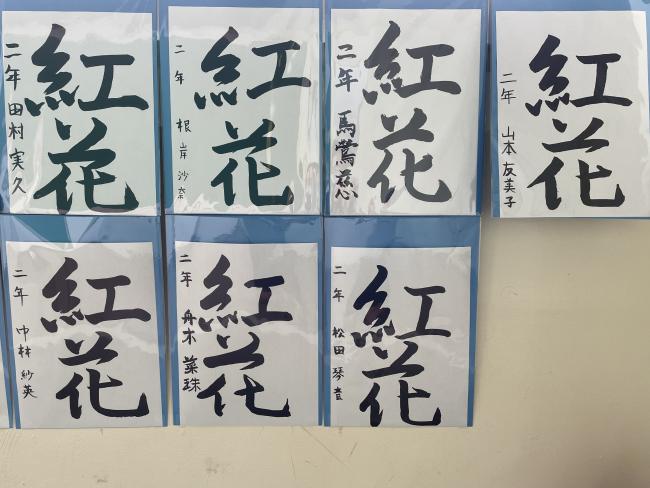 紅花
二年 田村 実久
紅花
二年 根岸 沙奈
紅花
二年 馬 鶯慈
紅花
二年 山本 友美子
紅花
二年 中林 紗英
紅花
二年 舟木 菜珠
紅花
二年 松田 琴音